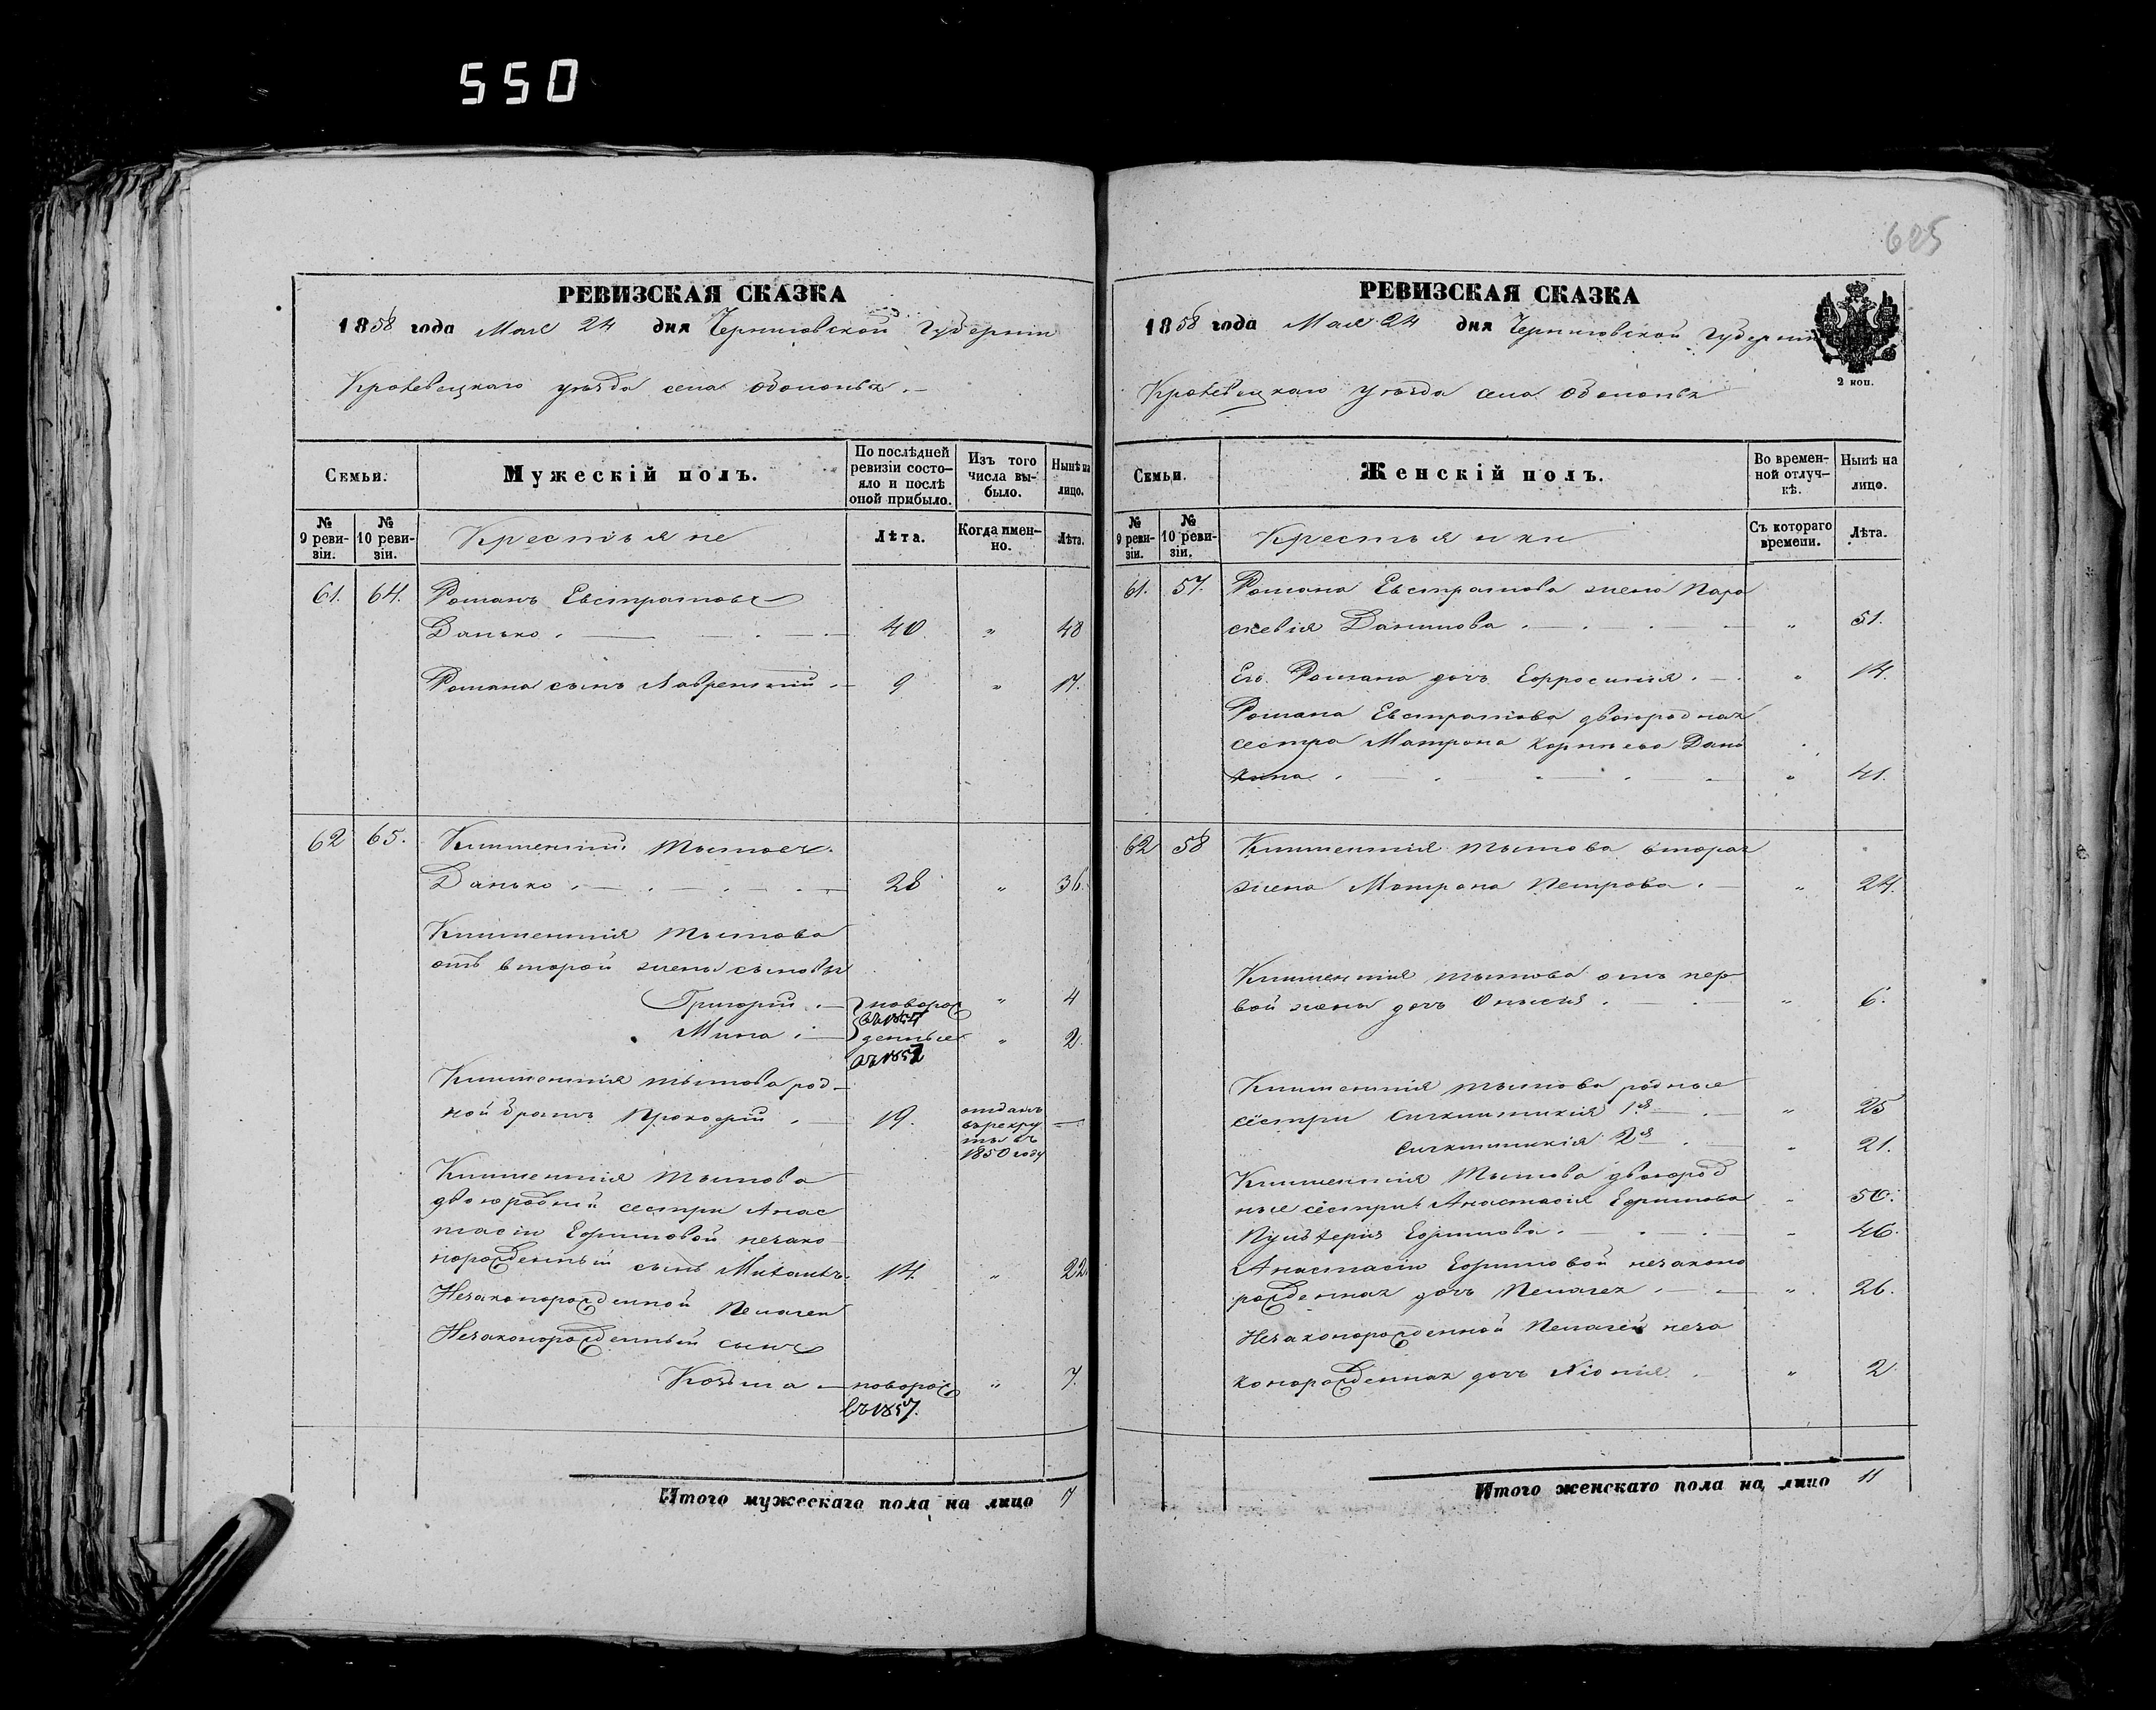 550
625
РЕВИЗСКАЯ СКАЗКА
1858 года Мая 24 дня Черниговской Губерніи
Кролевецкаго уѣзда села Оболонья
Семьи.
Мужескій полъ.
По послѣдней ревизіи состо-
яло и послѣ
оной прибыло.
Изъ того
числа вы-
было.
Нынѣ на
лицо.
№
9 реви-
зіи.
№
10 реви-
зіи.
Крестьяне
Лѣта.
Когда имен-
но.
Лѣта.
61. 64. Романъ Евстратовъ
Данько. 40. " 48
Романа сынъ Лаврентій. 9 " 17.
62 65. Климентій
Данько. 28 " 36.
Климентія
отъ второй жены сыновья
Григорій. новорож " 4
Мина. денные " 2
въ 1857
Климентія род-
ной братъ Прокофій. 19. отданъ
въ рекру
ты въ
1850 году
Климентія
двоюродной сестры Анас
тасіи Ефимовой незако
норожденный сынъ Михаилъ. 14. " 22.
Незаконорожденной Пелагеи
Незаконорожденный сынъ
Козьма новорож " 7.
въ 1857.
Итого мужескаго пола на лицо 7
РЕВИЗСКАЯ СКАЗКА
1858 года Мая 24 дня Черниговской Губерніи
2 коп.
Кролевецкаго уѣзда села Оболонья
Семьи.
Женскій полъ.
Во времен-
ной отлуч-
кѣ.
Нынѣ на
лицо.
№
9 реви-
зіи.
№
10 реви-
зіи.
Крестьянки
Съ котораго
времени.
Лѣта.
61. 57. Романа Евстратова жена Пара
скевія Данилова. " 51.
Его Романа дочь Ефросинія. " 14.
Романа Евстратова двоюродная
сестра Матрона Корнѣева Дань
кина. " 41.
62 58 Климентія вторая
жена Матрона Петрова. " 24.
Климентія отъ пер
вой жены дочь Онисія. " 6.
Климентія родные
сестры 1я " 25
2я " 21.
Климентія двоюрод
ные сестры Анастасія Ефимова " 50.
Пульхерія Ефимова. " 46.
Анастасіи Ефимовой незаконо
рожденная дочь Пелагея. " 26.
Незаконорожденной Пелагеи неза
конорожденная дочь Хіонія. " 2
Итого женскаго пола на лицо 11